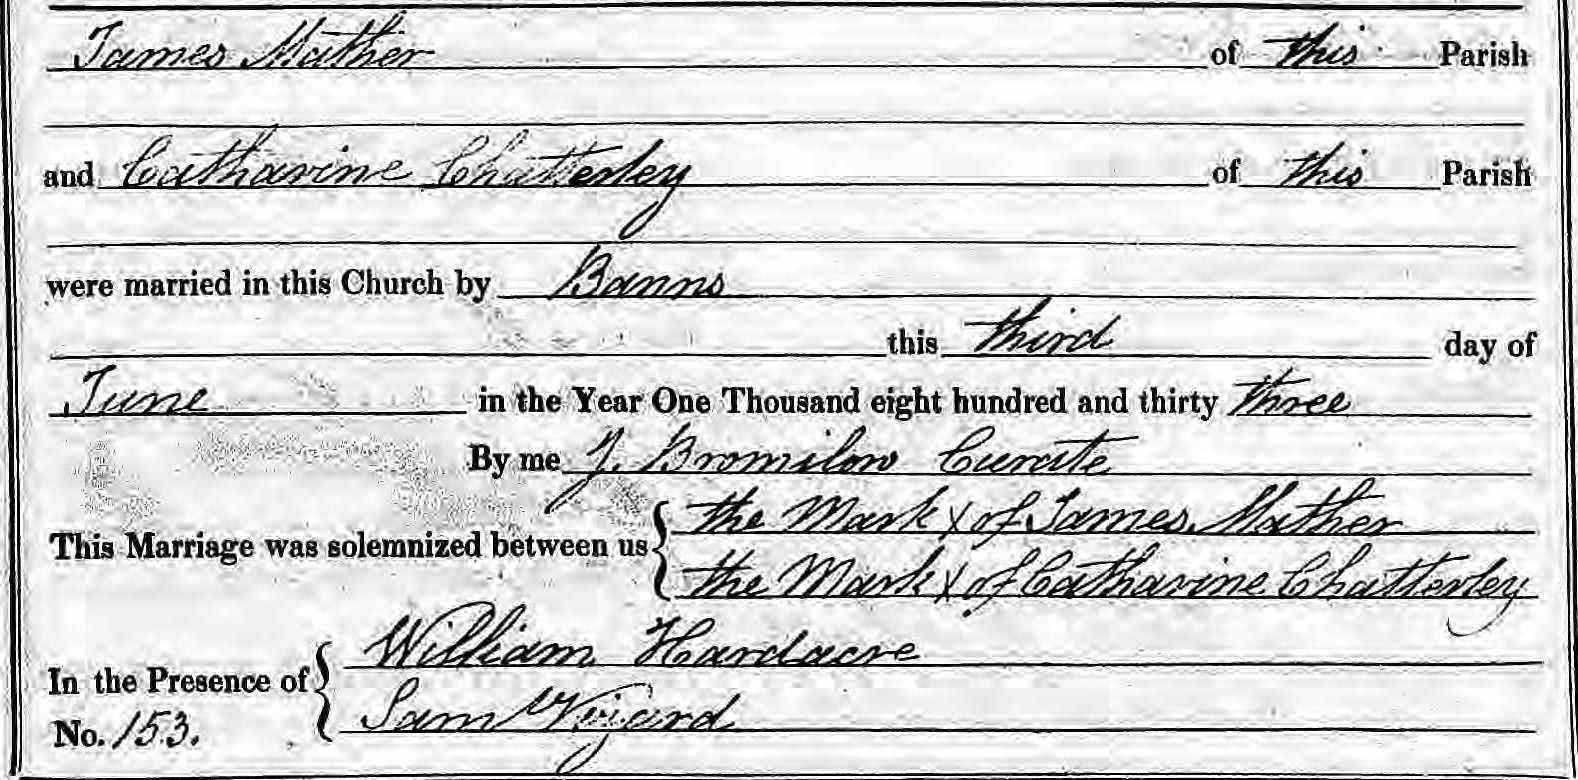 James Mather of this Parish
and Catharine Chatterley of this Parish
were married in this Church by Banns
this third day of
June in the Year One Thousand eight hundred and thirty three
By me J. Bromilow Curate
This Marriage was solemnized between us { the Mark X of James Mather
the Mark X of Catharine Chatterley
In the Presence of { William Hardacre
Sam
No. 153.